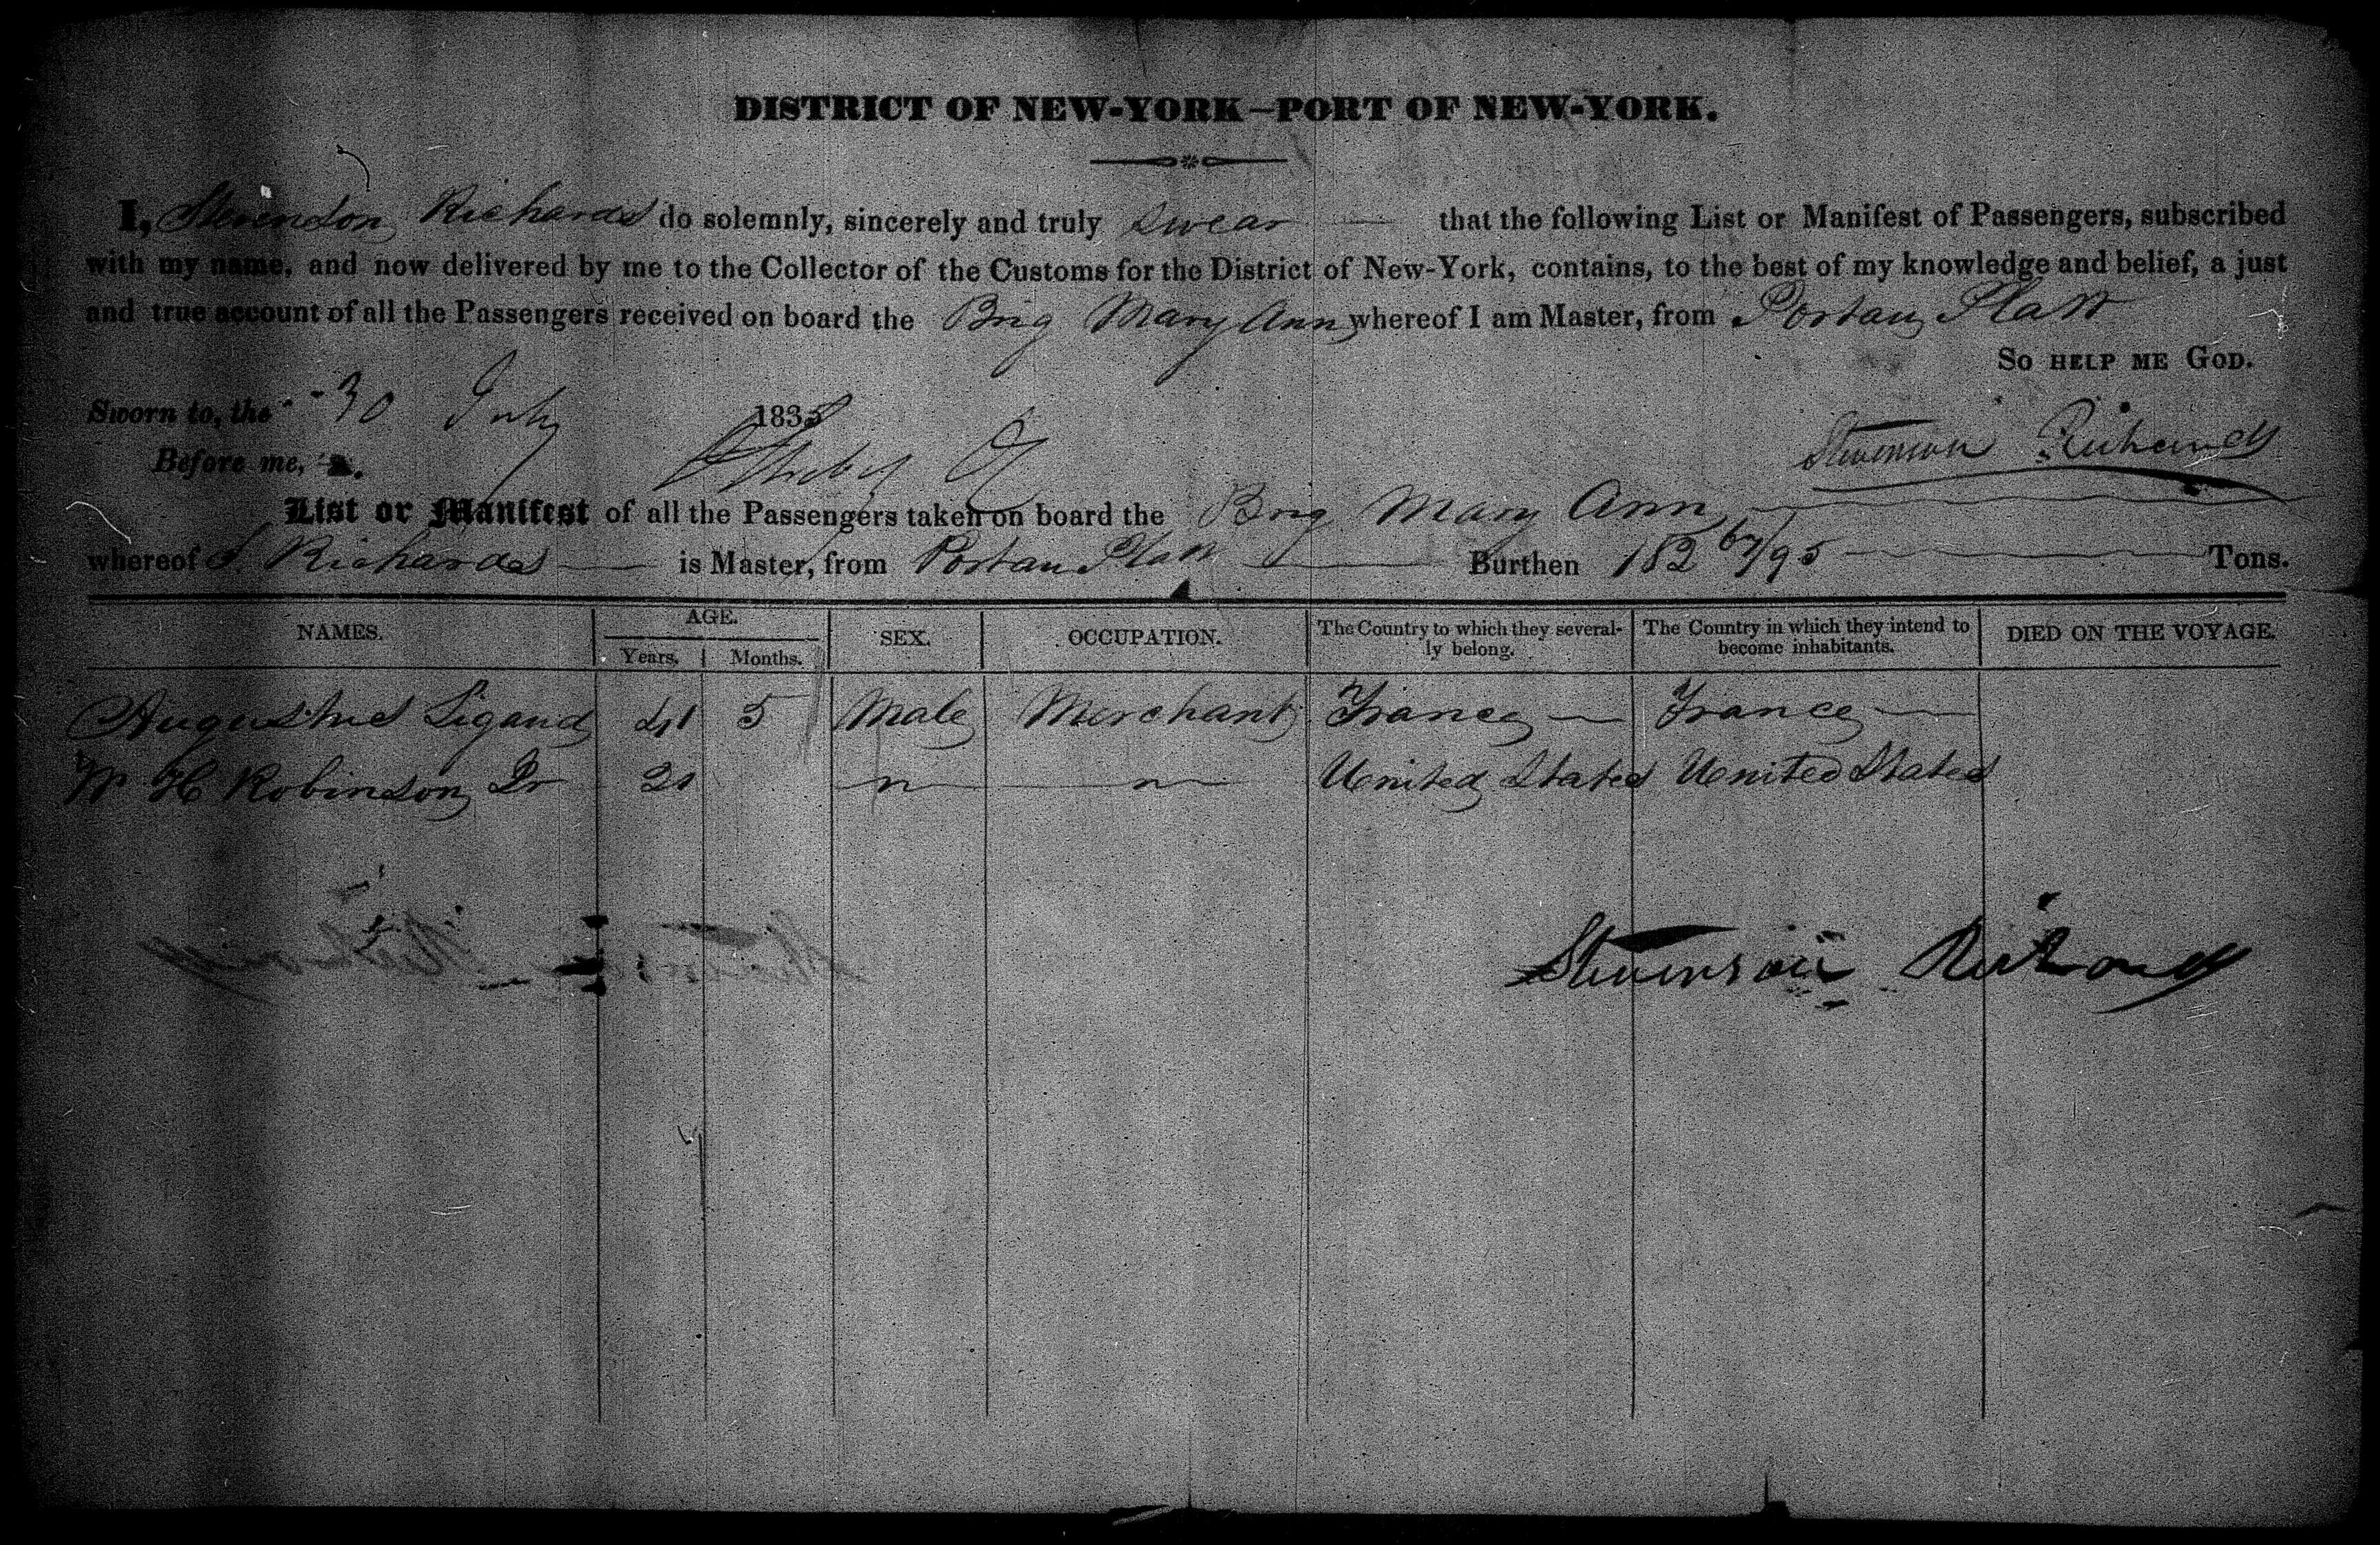 DISTRICT OF NEW-YORK–PORT OF NEW-YORK.
I, Stevenson Richards do solemnly, sincerely and truly swear that the following List or Manifest of Passengers, subscribed
with my name, and now delivered by me to the Collector of the Customs for the District of New-York, contains, to the best of my knowledge and belief, a just
and true account of all the Passengers received on board the Brig Mary Ann whereof I am Master, from Portau Platt
So HELP ME GOD.
Sworn to, the 30 July 183
Before me,
Stevenson Richards
List or Manifest of all the Passengers taken on board the Brig Mary Ann
whereof S. Richards is Master, from Portau Platt Burthen 182 67/95 Tons.
NAMES. AGE. Years. Months. SEX. OCCUPATION. The Country to which they severally belong. The Country in which they intend to become inhabitants. DIED ON THE VOYAGE.
Augustus Ligand 41 5 Male Merchant France France
W H Robinson Jr 21 " " United States United States
Stevenson Richards